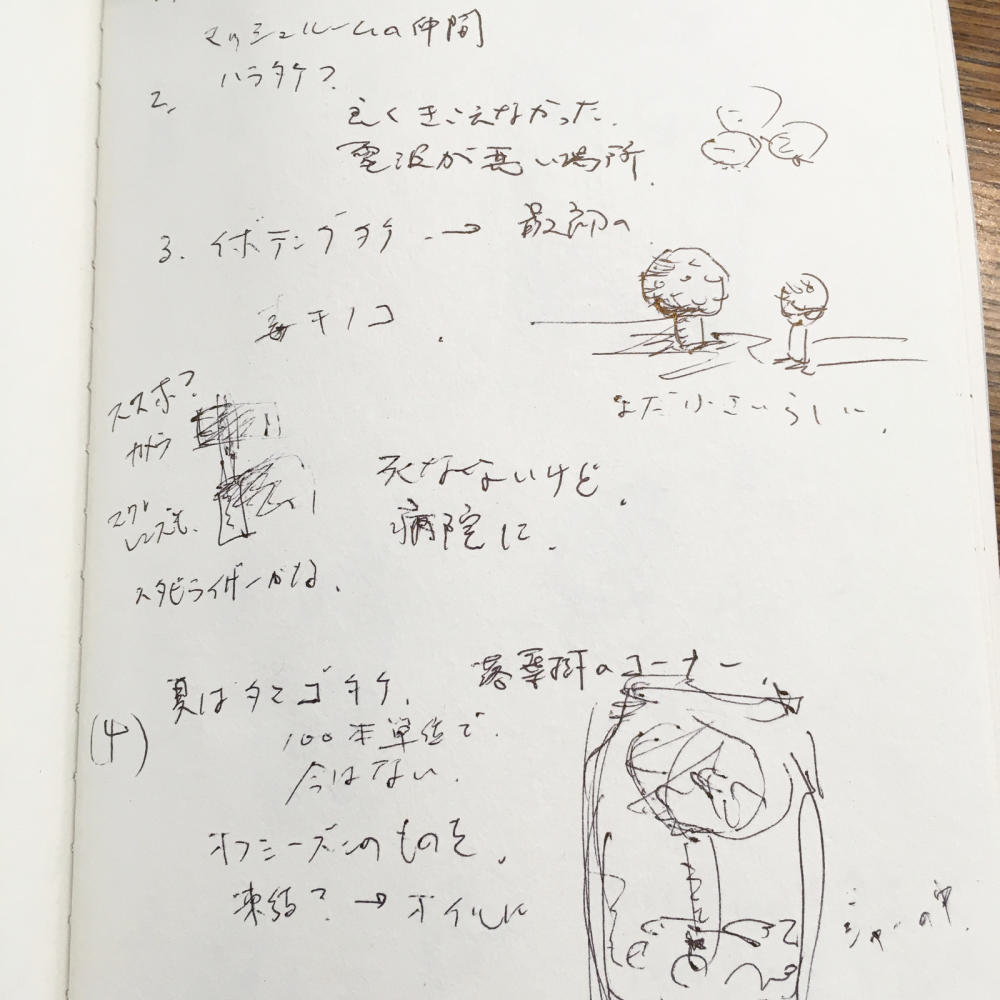 マッシュルームの仲間
ハラタケ?
2.
良くきこえなかった.
電波が悪い場所.
3. イボテングタケ. →
毒キノコ.
まだ小さいらしい.
スマホ?
カメラ
レンズも.
スタビライザーかな.
死なないけど.
病院に.
(4)
夏はタマゴタケ.
落葉樹のコーナー.
100本単位で.
今はない.
オフシーズンのものを.
凍結? → オイルに
ジャーの中.